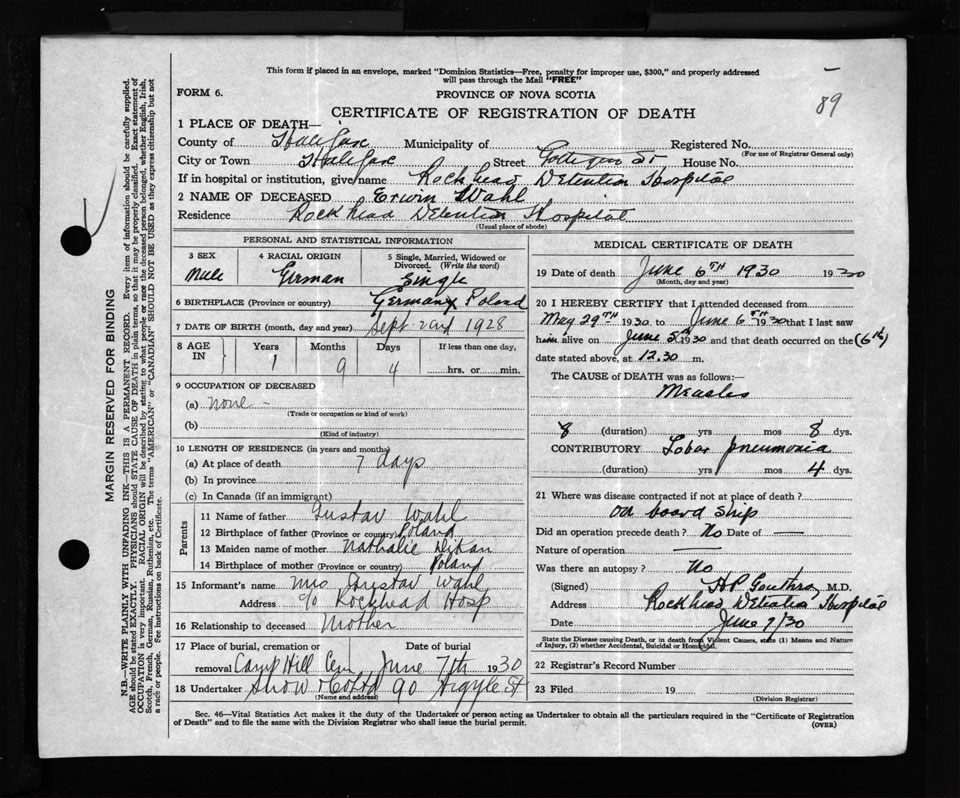 This form if placed in an envelope, marked "Dominion Statistics—Free, penalty for improper use, $300," and properly addressed
will pass through the Mail "FREE"
FORM 6.
PROVINCE OF NOVA SCOTIA
89
CERTIFICATE OF REGISTRATION OF DEATH
1 PLACE OF DEATH—
County of Halifax Municipality of Registered No.
(For use of Registrar General only)
City or Town Halifax Street St House No.
If in hospital or institution, give name Rockhead Detention Hospital
2 NAME OF DECEASED Erwin Wahl
Residence Rockhead Detention Hospital
(Usual place of abode)
PERSONAL AND STATISTICAL INFORMATION
3 SEX 4 RACIAL ORIGIN 5 Single, Married, Widowed or Divorced. (Write the word)
Male German Single
6 BIRTHPLACE (Province or country) Germany Poland
7 DATE OF BIRTH (month, day and year) Sept 2nd 1928
8 AGE IN Years Months Days If less than one day,
1 9 4 hrs. or min.
9 OCCUPATION OF DECEASED
(a) none -
(Trade or occupation or kind of work)
(b)
(Kind of industry)
10 LENGTH OF RESIDENCE (in years and months)
(a) At place of death 7 days
(b) In province
(c) In Canada (if an immigrant)
Parents
11 Name of father Gustav Wahl
12 Birthplace of father (Province or country) Poland
13 Maiden name of mother Nathalie
14 Birthplace of mother (Province or country) Poland
15 Informant's name Mrs Gustav Wahl
Address c/o Rockhead Hosp
16 Relationship to deceased Mother
17 Place of burial, cremation or removal Camp Hill Cem Date of burial June 7th 1930
18 Undertaker Snow & Co Ltd 90 Argyle St
(Name and address)
MEDICAL CERTIFICATE OF DEATH
19 Date of death June 6TH 1930 1930
(Month, day and year)
20 I HEREBY CERTIFY that I attended deceased from
May 29TH 1930 to June 6TH 1930 that I last saw
him alive on June 5th 1930 and that death occurred on the (6th)
date stated above, at 12.30 m.
The CAUSE of DEATH was as follows:
Measles
8 (duration) yrs mos 8 dys.
CONTRIBUTORY Lobar pneumonia
(duration) yrs mos 4 dys.
21 Where was disease contracted if not at place of death?
on board ship
Did an operation precede death? No Date of —
Nature of operation —
Was there an autopsy? No
(Signed) M.D.
Address Rockhead Detention Hospital
Date June 7/30
State the Disease causing Death, or in death from Violent Causes, state (1) Means and Nature
of Injury, (2) whether Accidental, Suicidal or Homicidal.
22 Registrar's Record Number
23 Filed 19
(Division Registrar)
Sec. 46—Vital Statistics Act makes it the duty of the Undertaker or person acting as Undertaker to obtain all the particulars required in the "Certificate of Registration
of Death" and to file the same with the Division Registrar who shall issue the burial permit.
(OVER)
MARGIN RESERVED FOR BINDING
N.B.—WRITE PLAINLY WITH UNFADING INK—THIS IS A PERMANENT RECORD. Every item of information should be carefully supplied.
AGE should be stated EXACTLY. PHYSICIANS should STATE CAUSE OF DEATH in plain terms, so that it may be properly classified. Exact statement of
OCCUPATION is very important. RACIAL ORIGIN will be described by stating to what people or race the deceased person belonged, whether English, Irish,
Scotch, French, German, Russian, Ruthenian, etc. The terms "AMERICAN" or "CANADIAN" SHOULD NOT BE USED as they express citizenship but not
a race or people. See instructions on back of Certificate.